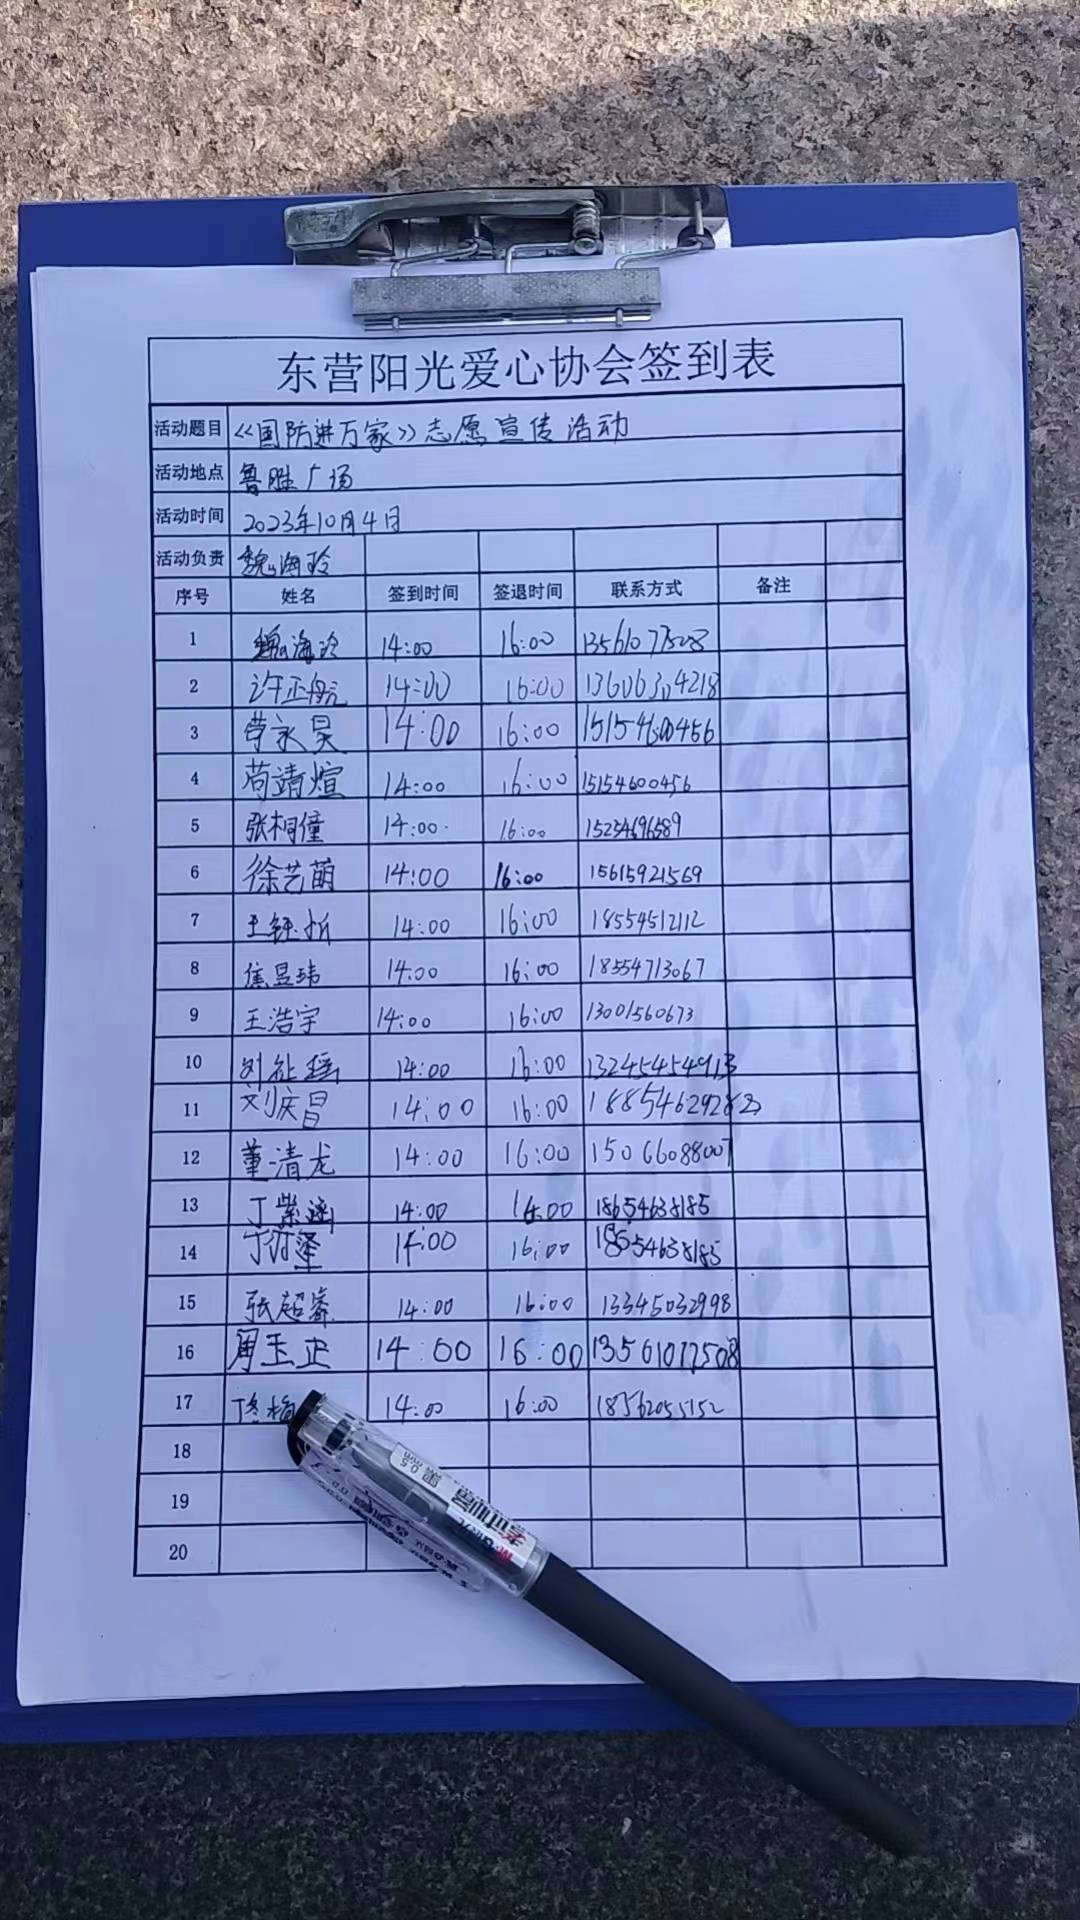 东营阳光爱心协会签到表
活动题目 《国防进万家》志愿宣传活动
活动地点 鲁胜广场
活动时间 2023年10月4日
活动负责 魏海玲
序号 姓名 签到时间 签退时间 联系方式 备注
1 魏海玲 14:00 16:00
2 许正航 14:00 16:00 13606304218
3 苟永昊 14:00 16:00 15154600456
4 苟靖煊 14:00 16:00 15154600456
5 张桐僮 14:00 16:00 15234696589
6 徐艺萌 14:00 16:00 15615921569
7 王钰 14:00 16:00 18554512112
8 焦昱玮 14:00 16:00 18554713067
9 王浩宇 14:00 16:00 13001560673
10 刘祉瑶 14:00 16:00
11 刘庆昌 14:00 16:00
12 董清龙 14:00 16:00 15066088007
13 丁紫涵 14:00 16:00 18654638185
14 14:00 16:00
15 张超睿 14:00 16:00 13345032998
16 周玉正 14:00 16:00 13561077508
17 14:00 16:00 18562055152
18
19
20